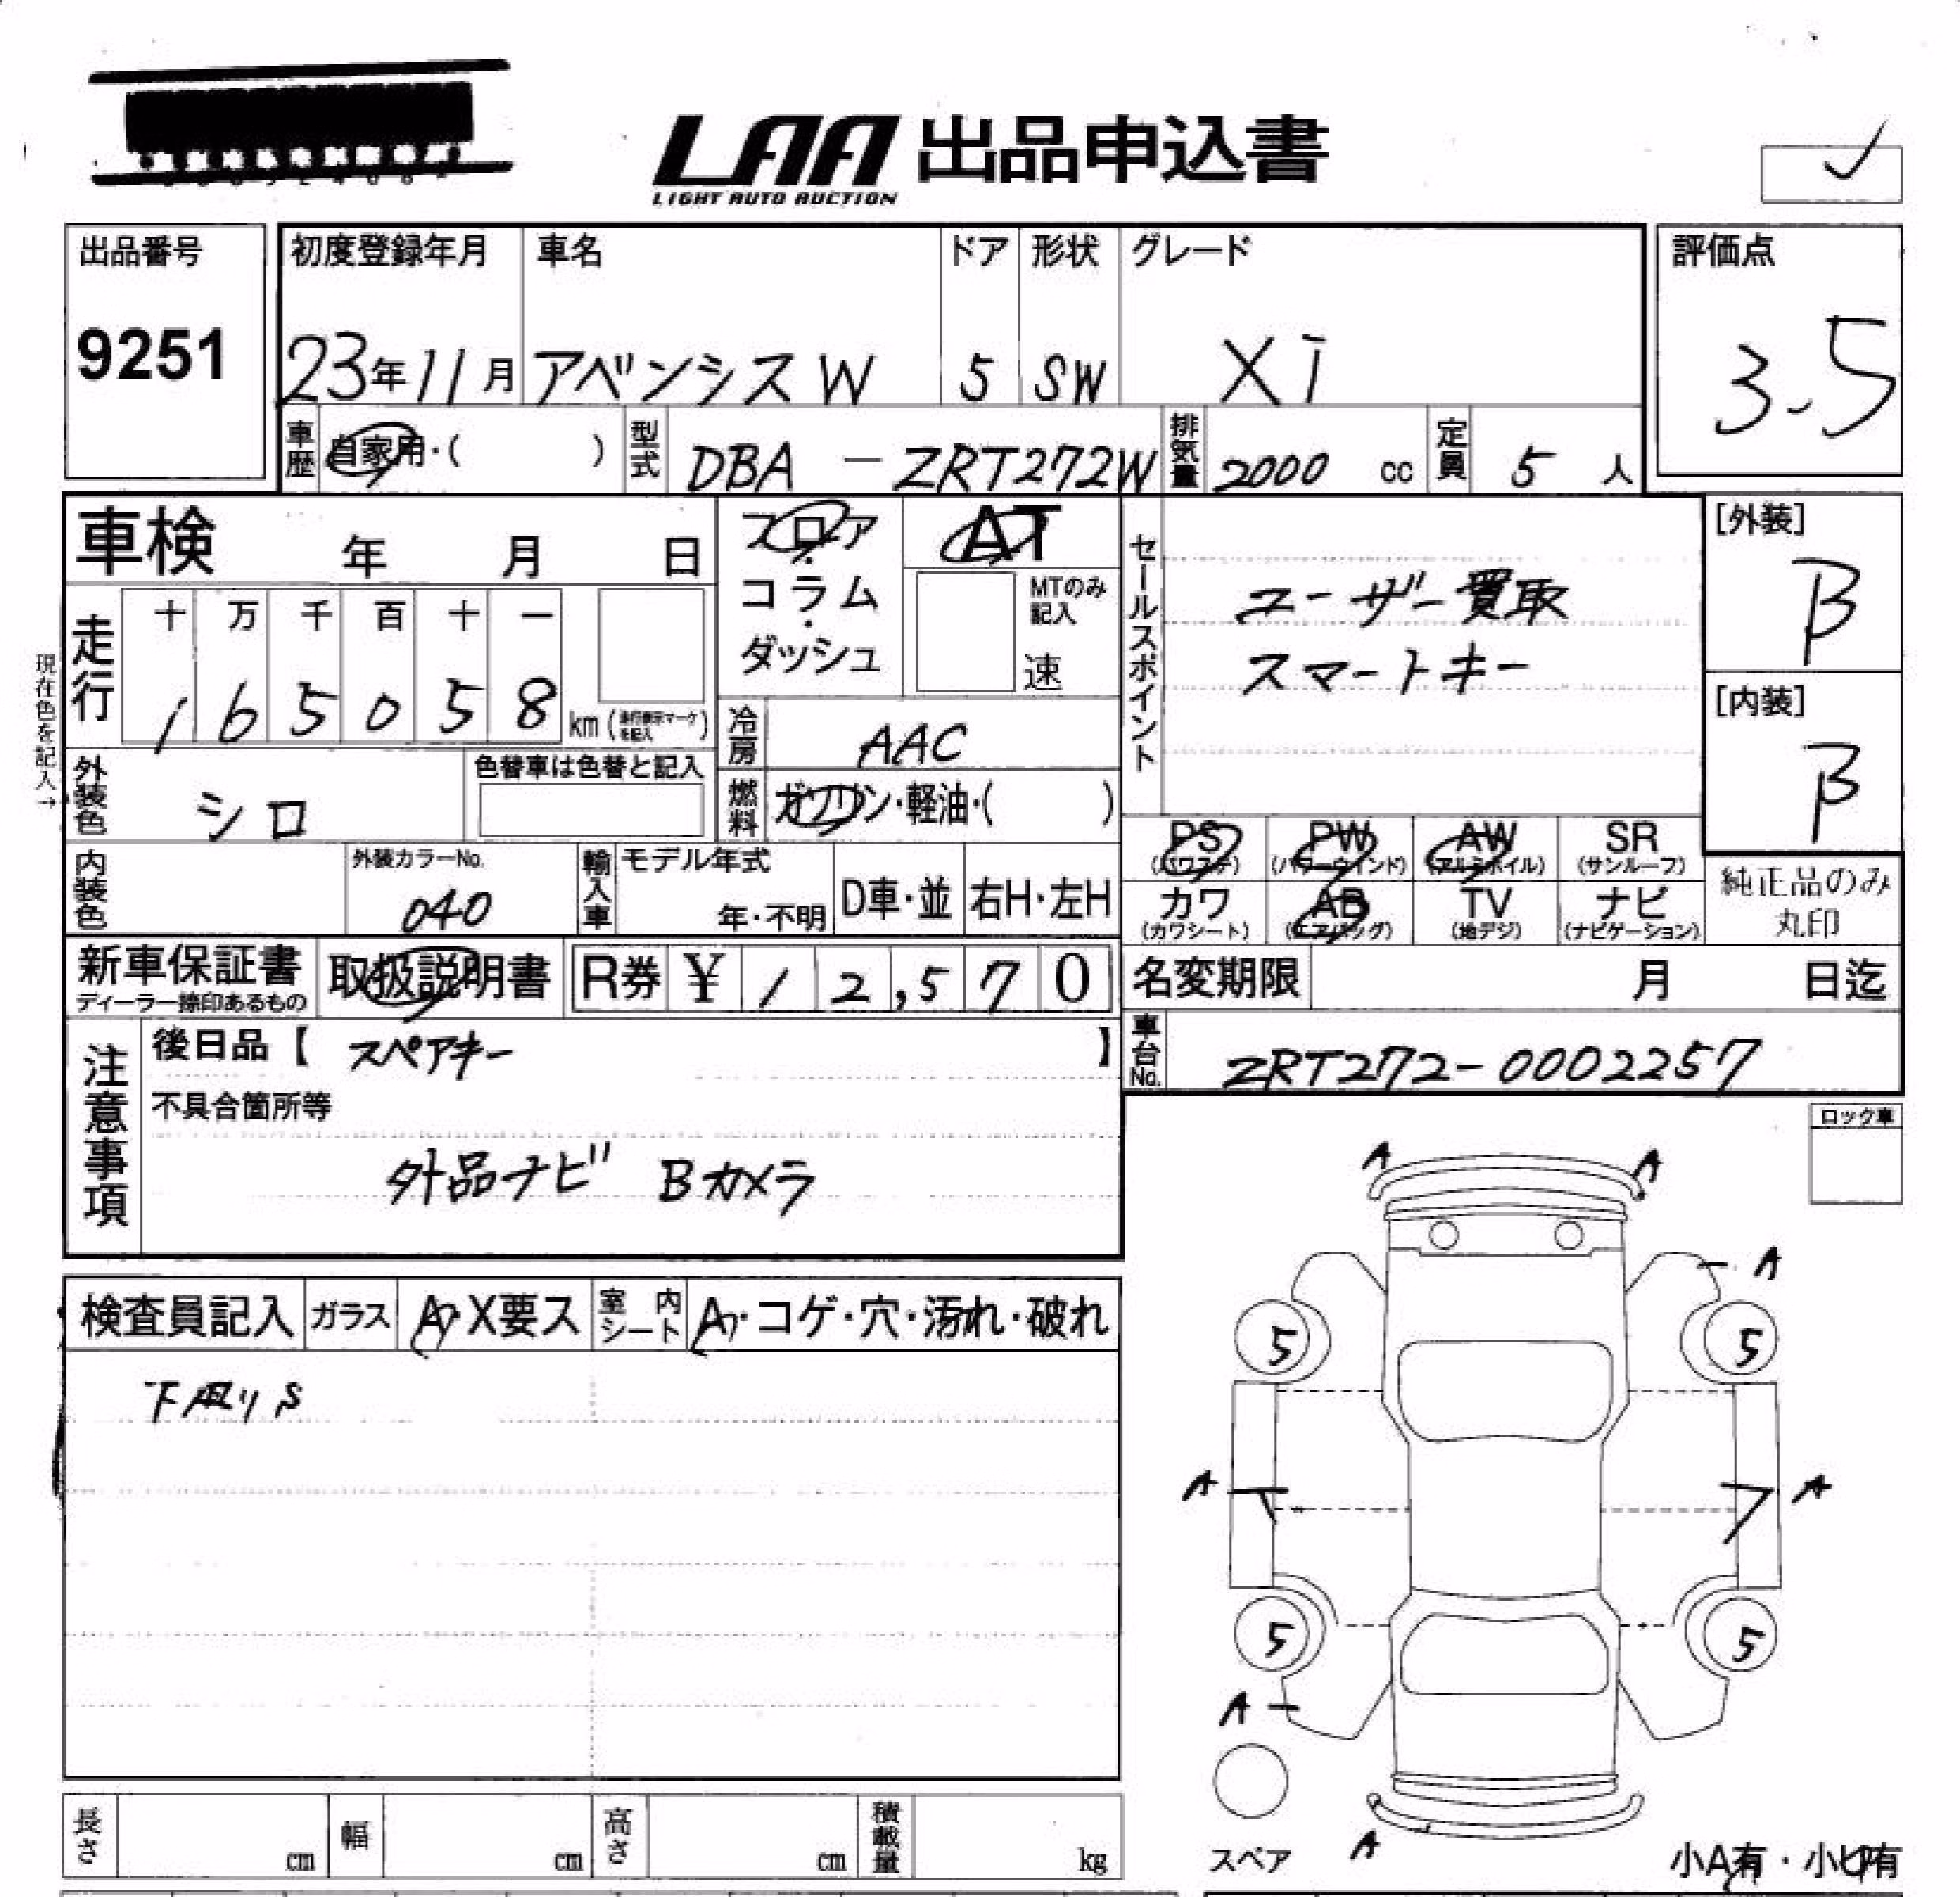 LAA 出品申込書
LIGHT AUTO AUCTION
出品番号
9251
初度登録年月 車名 ドア 形状 グレード
23年11月 アベンシスW 5 SW Xi
評価点
3.5
車歴 自家用・( ) 型式 DBA-ZRT272W 排気量 2000 cc 定員 5 人
車検 年 月 日
フロア・コラム・ダッシュ
AT
MTのみ記入
速
セールスポイント
ユーザー買取
スマートキー
[外装]
B
[内装]
B
現在色を記入→
走行
十 万 千 百 十 一
1 6 5 0 5 8 km (走行表示マークを記入)
冷房 AAC
外装色 シロ 色替車は色替と記入
燃料 ガソリン・軽油・( )
PS (パワステ) PW (パワーウインド) AW (アルミホイル) SR (サンルーフ)
カワ (カワシート) AB (エアバッグ) TV (地デジ) ナビ (ナビゲーション)
純正品のみ
丸印
内装色 外装カラーNo. 040 輸入車 モデル年式 年・不明 D車・並 右H・左H
新車保証書 ディーラー捺印あるもの 取扱説明書 R券 ¥ 12,570
名変期限 月 日迄
車台No. ZRT272-0002257
注意事項
後日品【 スペアキー 】
不具合箇所等
外品ナビ Bカメラ
ロック車
検査員記入 ガラス A・X要ス 室内シート A・コゲ・穴・汚れ・破れ
下廻りS
A A
A
5 5
A A
5 5
A
スペア A
小A有・小U有
長さ cm 幅 cm 高さ cm 積載量 kg